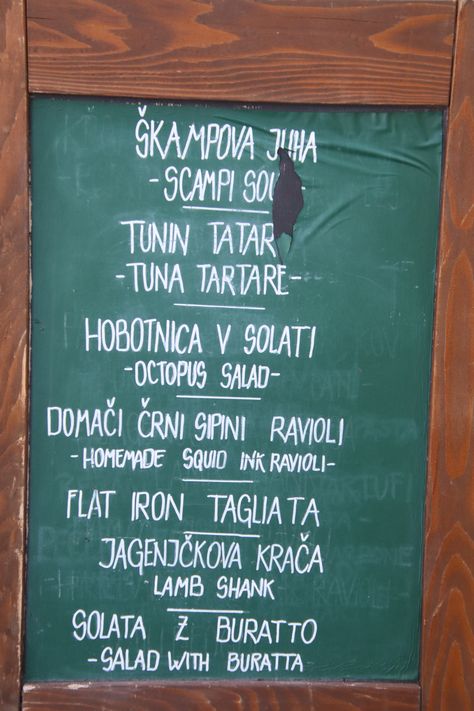 ŠKAMPOVA JUHA
-SCAMPI
TUNIN TATAR
-TUNA TARTARE-
HOBOTNICA V SOLATI
-OCTOPUS SALAD-
DOMAČI ČRNI SIPINI RAVIOLI
-HOMEMADE SQUID INK RAVIOLI-
FLAT IRON TAGLIATA
JAGENJČKOVA KRAČA
LAMB SHANK
SOLATA Z BURATTO
-SALAD WITH BURATTA-